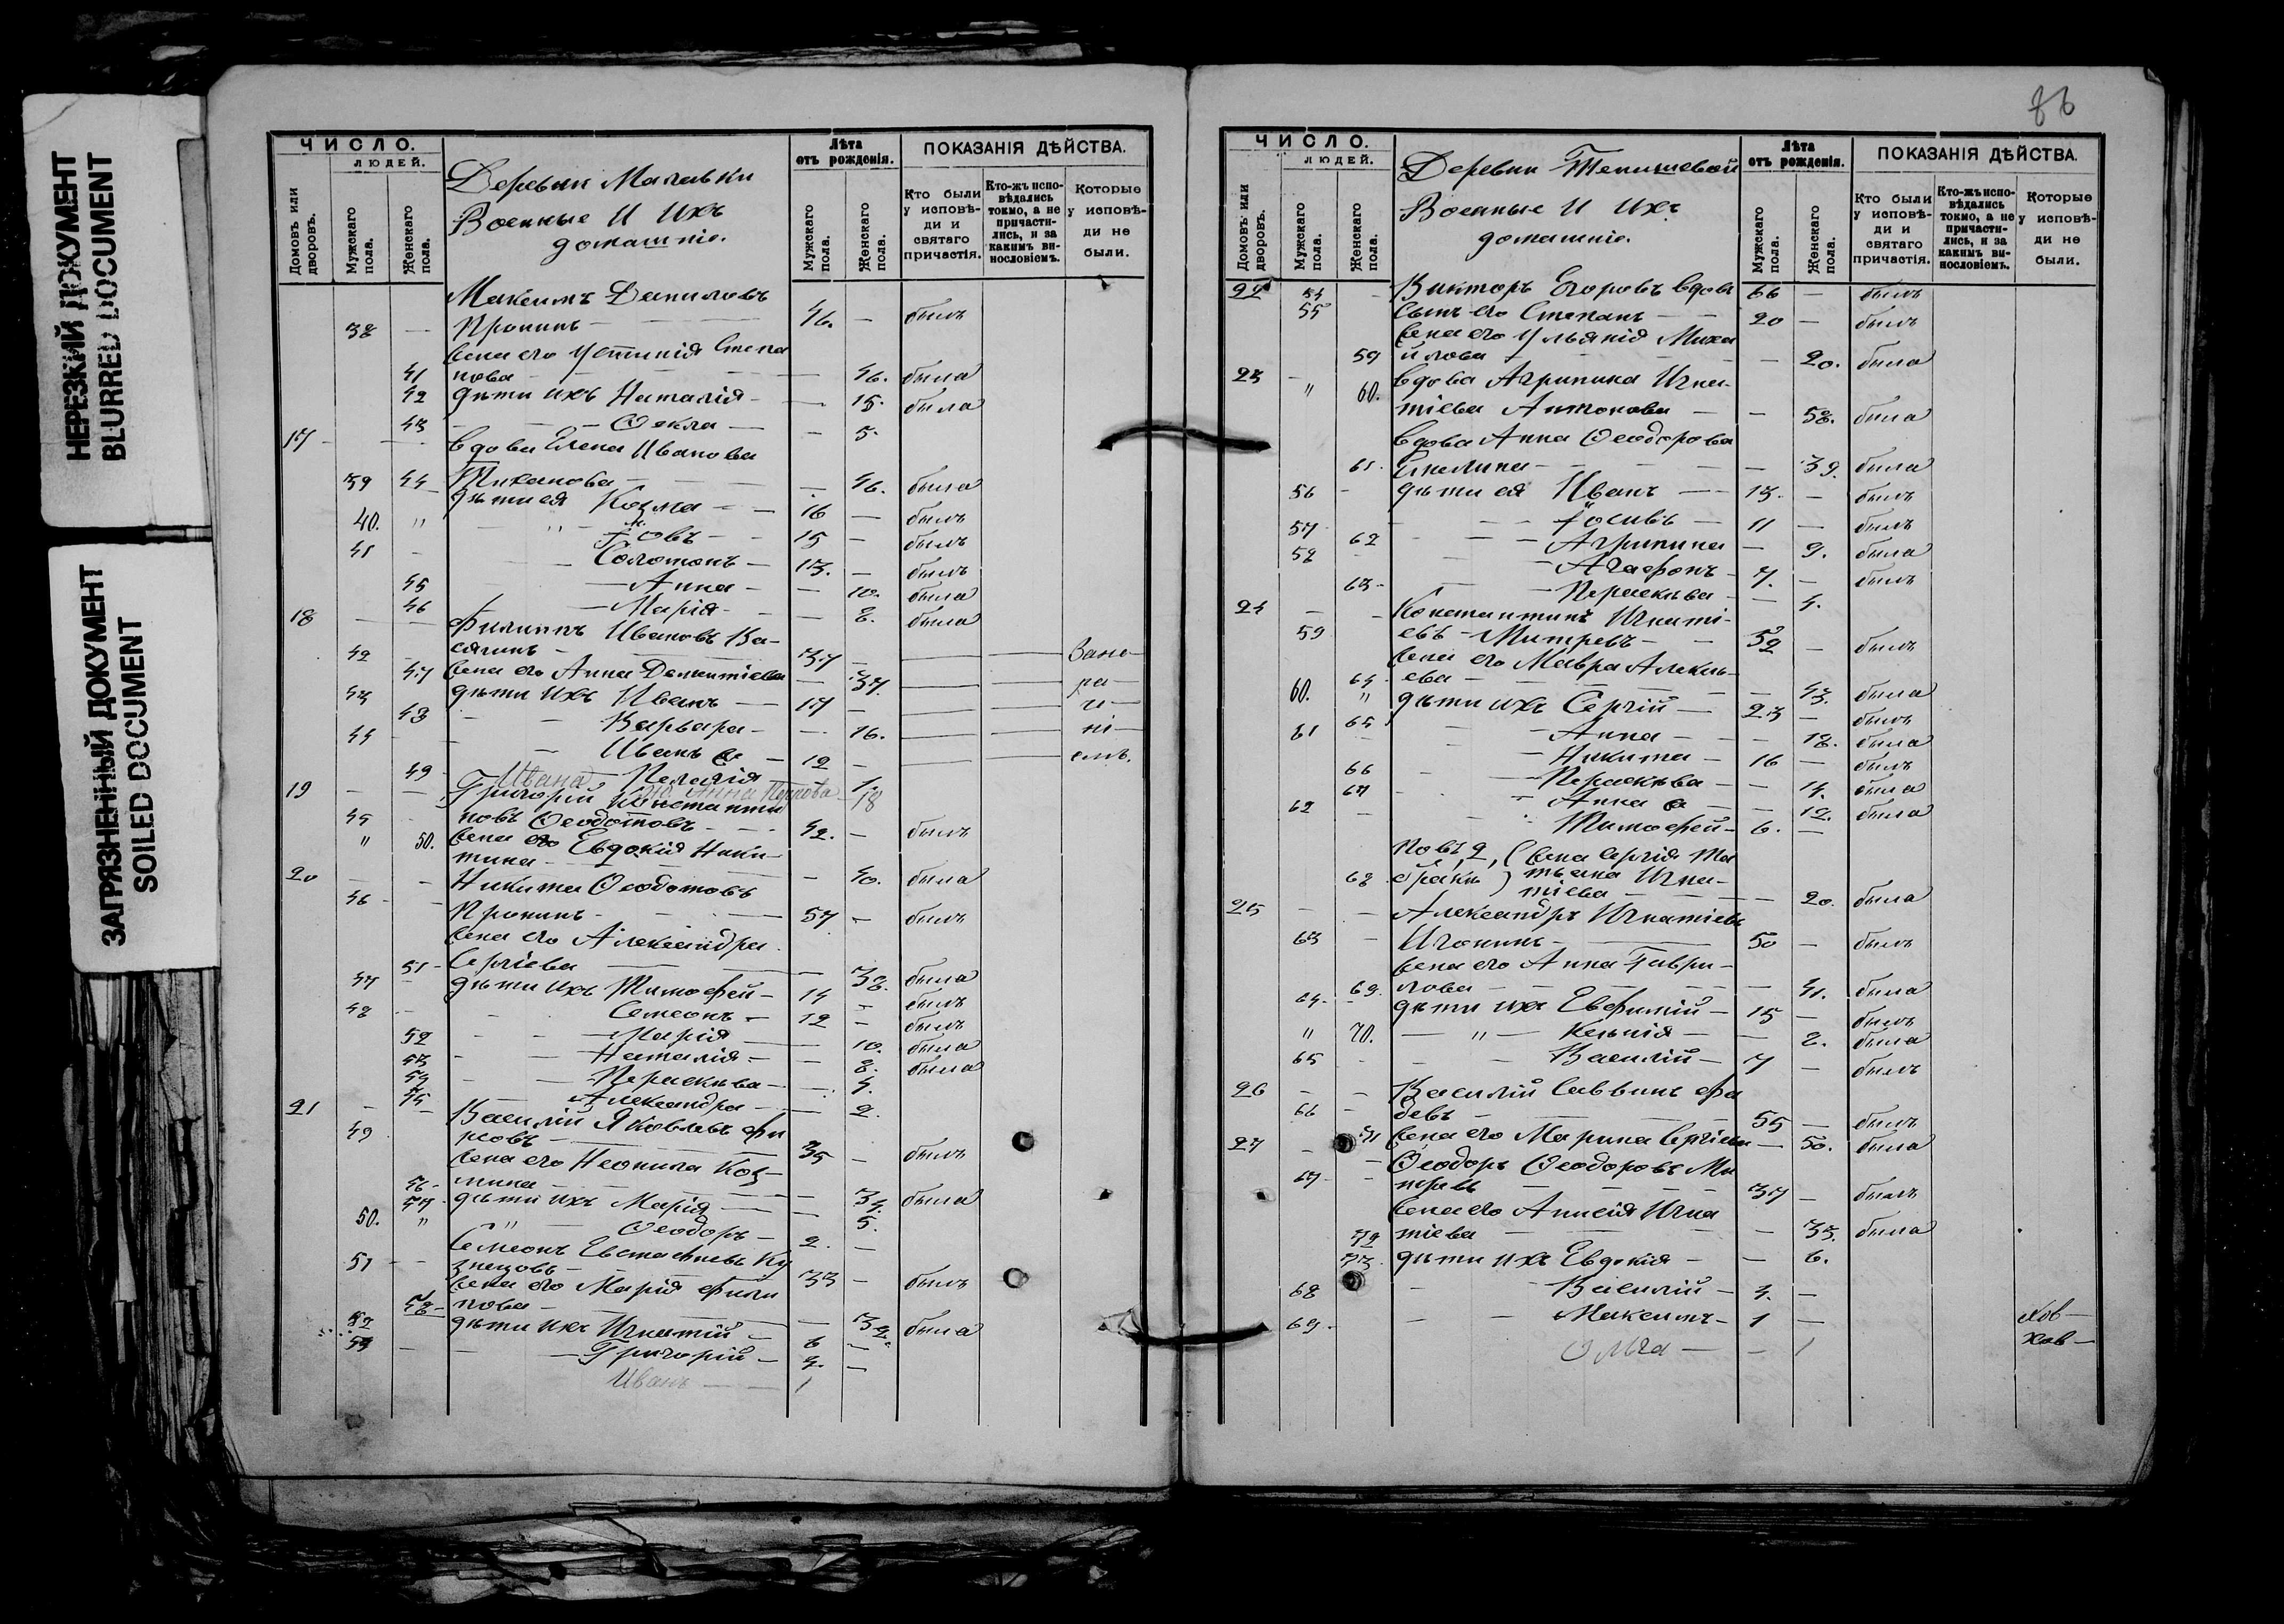 НЕРЕЗКИЙ ДОКУМЕНТ
BLURRED DOCUMENT
ЗАГРЯЗНЕННЫЙ ДОКУМЕНТ
SOILED DOCUMENT
ЧИСЛО.
ЛЮДЕЙ.
Домовъ или дворовъ.
Мужскаго пола.
Женскаго пола.
Деревни
Военные и ихъ
домашніе.
Лѣта
отъ рожденія.
Мужскаго пола.
Женскаго пола.
ПОКАЗАНІЯ ДѢЙСТВА.
Кто были у исповѣди и святаго причастія.
Кто-жъ исповѣдались токмо, а не причастились, и за какимъ винословіемъ.
Которые у исповѣди не были.
Максимъ Даниловъ
38 — Пронинъ — 46. — былъ
жена его Устинія Степа
41 нова — 46. была
42 дѣти ихъ Наталія — 15. была
43 Ѳекла — 5.
17 вдова Елена Иванова
39 44 Тиханова — 46. была
дѣти ея Козма — 16 — былъ
40. " Іовъ — 15 — былъ
41 Соломонъ — 13. — былъ
45 Анна — 10. была
46 Марія — 8. была
18 Филиппъ Ивановъ Ва-
42 сягинъ — 37 — Зано
47 жена его Анна Дементіева — 37. ра
43 дѣти ихъ Иванъ — 17 —
48 Варвара — 16.
44 Иванъ — 12 —
49 Пелагія — 1.
Ивана жена Анна Петрова 18
19 Григорій Константи
45 новъ Ѳеодотовъ — 42. — былъ
" 50. жена его Евдокія Ники-
тина — 40. была
20 Никита Ѳеодотовъ
46 Пронинъ — 57 — былъ
жена его Александра
51 Сергіева — 38. была
47 дѣти ихъ Тимофей — 14 — былъ
48 Семеонъ — 12 — былъ
52 Марія — 10. была
53 Наталія — 8. была
54 Параскѣва — 4.
55 Александра — 2.
21 Василій Яковлевъ Фи
49 рсовъ — 35 — былъ
жена его Неонила Коз-
56 мина — 34. была
57 дѣти ихъ Марія — 5.
50. " Ѳеодоръ — 2. —
Семеонъ Евстафіевъ Ку
51 знецовъ — 33 — былъ
жена его Марія Фили
58 пова — 32. была
52 дѣти ихъ Игнатій — 6 —
53 Григорій — 3. —
Иванъ — 1
86
ЧИСЛО.
ЛЮДЕЙ.
Домовъ или дворовъ.
Мужскаго пола.
Женскаго пола.
Деревни Тенишевой
Военные и ихъ
домашніе.
Лѣта
отъ рожденія.
Мужскаго пола.
Женскаго пола.
ПОКАЗАНІЯ ДѢЙСТВА.
Кто были у исповѣди и святаго причастія.
Кто-жъ исповѣдались токмо, а не причастились, и за какимъ винословіемъ.
Которые у исповѣди не были.
22 54 — Викторъ Егоровъ вдов 66 — былъ
55 сынъ его Степанъ — 20 — былъ
жена его Ульянія Миха
59 йлова — 20. была
23 " 60. вдова Агрипина Игна-
тіева Антонова — 58. была
вдова Анна Ѳеодорова
61. — 39. была
56 дѣти ея Иванъ — 13. — былъ
57 Іосивъ — 11 — былъ
62 Агрипина — 9. была
58 Агафонъ — 7. — былъ
63 Параскѣва — 4.
24 Константинъ Игнаті-
59 евъ Митревъ — 52 — былъ
жена его Мавра Алексѣ-
64 ева — 43. была
60. " дѣти ихъ Сергій — 23 — былъ
65 Анна — 18. была
61 Никита — 16 — былъ
66 Параскѣва — 14. была
67 Анна — 12. была
62 Тимофей — 6. —
жена Сергія Та
68 тьяна Игна-
тіева — 20. была
25 Александръ Игнатіевъ
63 Игонинъ — 50 — былъ
жена его Анна Гаври-
69. лова — 41. была
64. дѣти ихъ Евфимій — 15 — былъ
" 70. " Ксенія — 8. была
65 Василій — 7 — былъ
26 Василій Саввинъ Фа
66 деевъ — 55 — былъ
71 жена его Марина Сергіева — 50. была
27 Ѳеодоръ Ѳеодоровъ Ми
67 тревъ — 37 — былъ
жена его Анисія Игна
72 тіева — 35. была
73. дѣти ихъ Евдокія — 6.
68 Василій — 3. —
69. Максимъ — 1 —
Ольга — 1